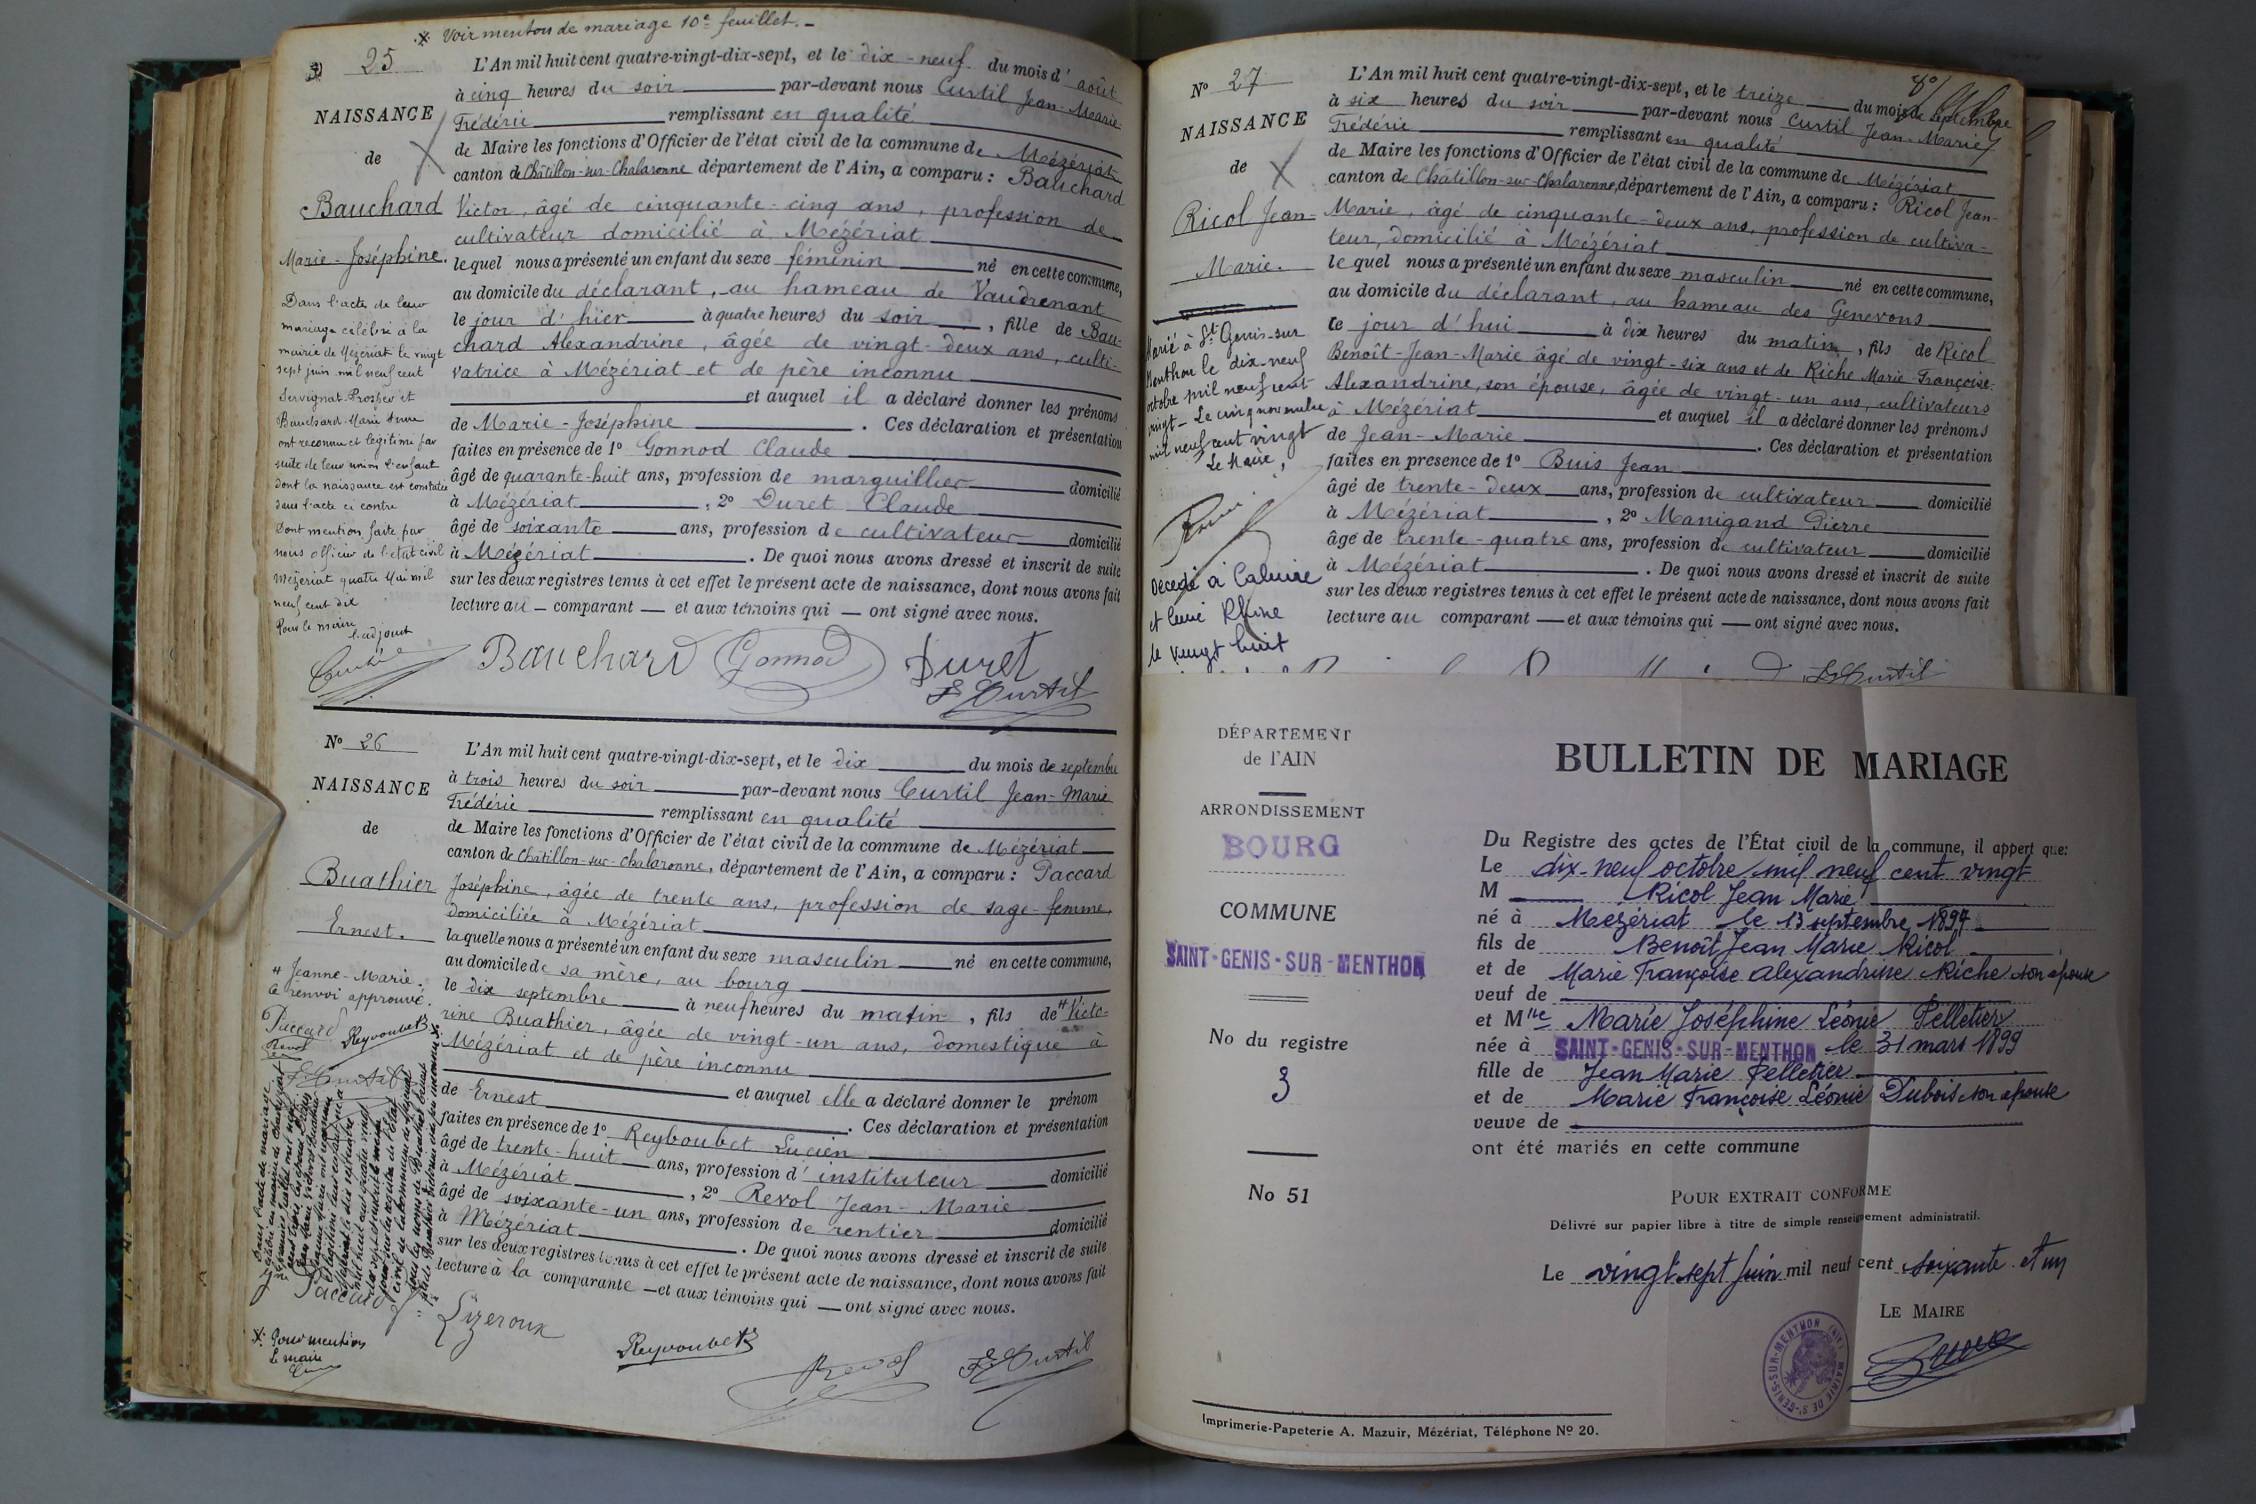 Voir menton de mariage 10e feuillet. -
25
NAISSANCE
de
Bauchard
Marie-Joséphine.
L'An mil huit cent quatre-vingt-dix-sept, et le dix-neuf du mois d'août
à cinq heures du soir par-devant nous Curtil Jean-Marie
Frédéric remplissant en qualité
de Maire les fonctions d'Officier de l'état civil de la commune de Mézériat
canton de Châtillon-sur-Chalaronne département de l'Ain, a comparu : Bauchard
Victor, âgé de cinquante-cinq ans, profession de
cultivateur domicilié à Mézériat
lequel nous a présenté un enfant du sexe féminin né en cette commune,
au domicile du déclarant, au hameau de Vaudrenant
le jour d'hier à quatre heures du soir, fille de Bau-
chard Alexandrine, âgée de vingt-deux ans, culti-
vatrice à Mézériat et de père inconnu
et auquel il a déclaré donner les prénoms
de Marie-Joséphine. Ces déclaration et présentation
faites en présence de 1° Gonnod Claude
âgé de quarante-huit ans, profession de marguillier domicilié
à Mézériat, 2° Duret Claude
âgé de soixante ans, profession de cultivateur domicilié
à Mézériat. De quoi nous avons dressé et inscrit de suite
sur les deux registres tenus à cet effet le présent acte de naissance, dont nous avons fait
lecture au comparant et aux témoins qui ont signé avec nous.
Dans l'acte de leur
mariage célébré à la
mairie de Mézériat le vingt
sept juin mil neuf cent
Servignat Prosper et
Bauchard Marie Anne
ont reconnu et légitimé par
suite de leur union l'enfant
dont la naissance est constatée
dans l'acte ci contre
Dont mention faite par
nous officier de l'état civil
Mézériat quatre Mai mil
neuf cent dix
Pour le maire
l'adjoint
Bauchard Gonnod Duret
F Curtil
N° 26
NAISSANCE
de
Buathier
Ernest.
L'An mil huit cent quatre-vingt-dix-sept, et le dix du mois de septembre
à trois heures du soir par-devant nous Curtil Jean-Marie
Frédéric remplissant en qualité
de Maire les fonctions d'Officier de l'état civil de la commune de Mézériat
canton de Châtillon-sur-Chalaronne, département de l'Ain, a comparu : Paccard
Joséphine, âgée de trente ans, profession de sage-femme,
domiciliée à Mézériat
laquelle nous a présenté un enfant du sexe masculin né en cette commune,
au domicile de sa mère, au bourg
le dix septembre à neuf heures du matin, fils de # Victo-
rine Buathier, âgée de vingt-un ans, domestique à
Mézériat et de père inconnu
et auquel elle a déclaré donner le prénom
de Ernest. Ces déclaration et présentation
faites en présence de 1° Reyboubet Lucien
âgé de trente-huit ans, profession d'instituteur domicilié
à Mézériat, 2° Revol Jean-Marie
âgé de soixante-un ans, profession de rentier domicilié
à Mézériat. De quoi nous avons dressé et inscrit de suite
sur les deux registres tenus à cet effet le présent acte de naissance, dont nous avons fait
lecture à la comparante et aux témoins qui ont signé avec nous.
# Jeanne-Marie.
Ce renvoi approuvé.
Paccard Reyvoubet
Revol
F. Curtil
Paccard Lizeroux
Reyvoubet
Revol
F. Curtil
Pour mention
Le maire
N° 27
NAISSANCE
de
Ricol Jean-
Marie.
L'An mil huit cent quatre-vingt-dix-sept, et le treize du mois de septembre
à six heures du soir par-devant nous Curtil Jean-Marie
Frédéric remplissant en qualité
de Maire les fonctions d'Officier de l'état civil de la commune de Mézériat
canton de Châtillon-sur-Chalaronne, département de l'Ain, a comparu : Ricol Jean-
Marie, âgé de cinquante-deux ans, profession de cultiva-
teur, domicilié à Mézériat
lequel nous a présenté un enfant du sexe masculin né en cette commune,
au domicile du déclarant, au hameau des Genevons
le jour d'hui à dix heures du matin, fils de Ricol
Benoît-Jean-Marie âgé de vingt-six ans et de Riche Marie Françoise-
Alexandrine, son épouse, âgée de vingt-un ans, cultivateurs
à Mézériat et auquel il a déclaré donner les prénoms
de Jean-Marie. Ces déclaration et présentation
faites en présence de 1° Buis Jean
âgé de trente-deux ans, profession de cultivateur domicilié
à Mézériat, 2° Manigand Pierre
âgé de trente-quatre ans, profession de cultivateur domicilié
à Mézériat. De quoi nous avons dressé et inscrit de suite
sur les deux registres tenus à cet effet le présent acte de naissance, dont nous avons fait
lecture au comparant et aux témoins qui ont signé avec nous.
Marié à St Genis-sur
Menthon le dix-neuf
octobre mil neuf cent
vingt - Le cinq novembre
mil neuf cent vingt
Le Maire,
Décédé à Caluire
et Cuire Rhône
le vingt huit
F Curtil
DÉPARTEMENT
de l'AIN
ARRONDISSEMENT
BOURG
COMMUNE
SAINT-GENIS-SUR-MENTHON
No du registre
3
No 51
BULLETIN DE MARIAGE
Du Registre des actes de l'État civil de la commune, il appert que:
Le dix-neuf octobre mil neuf cent vingt
M Ricol Jean Marie
né à Mézériat le 13 septembre 1897
fils de Benoît Jean Marie Ricol
et de Marie Françoise Alexandrine Riche son épouse
veuf de
et Mlle Marie Joséphine Léonie Pelletier
née à SAINT-GENIS-SUR-MENTHON le 31 mars 1899
fille de Jean Marie Pelletier
et de Marie Françoise Léonie Dubois son épouse
veuve de
ont été mariés en cette commune
POUR EXTRAIT CONFORME
Délivré sur papier libre à titre de simple renseignement administratif.
Le vingt sept juin mil neuf cent soixante et un
LE MAIRE
MAIRIE DE St-GENIS-SUR-MENTHON (AIN)
Imprimerie-Papeterie A. Mazuir, Mézériat, Téléphone No 20.